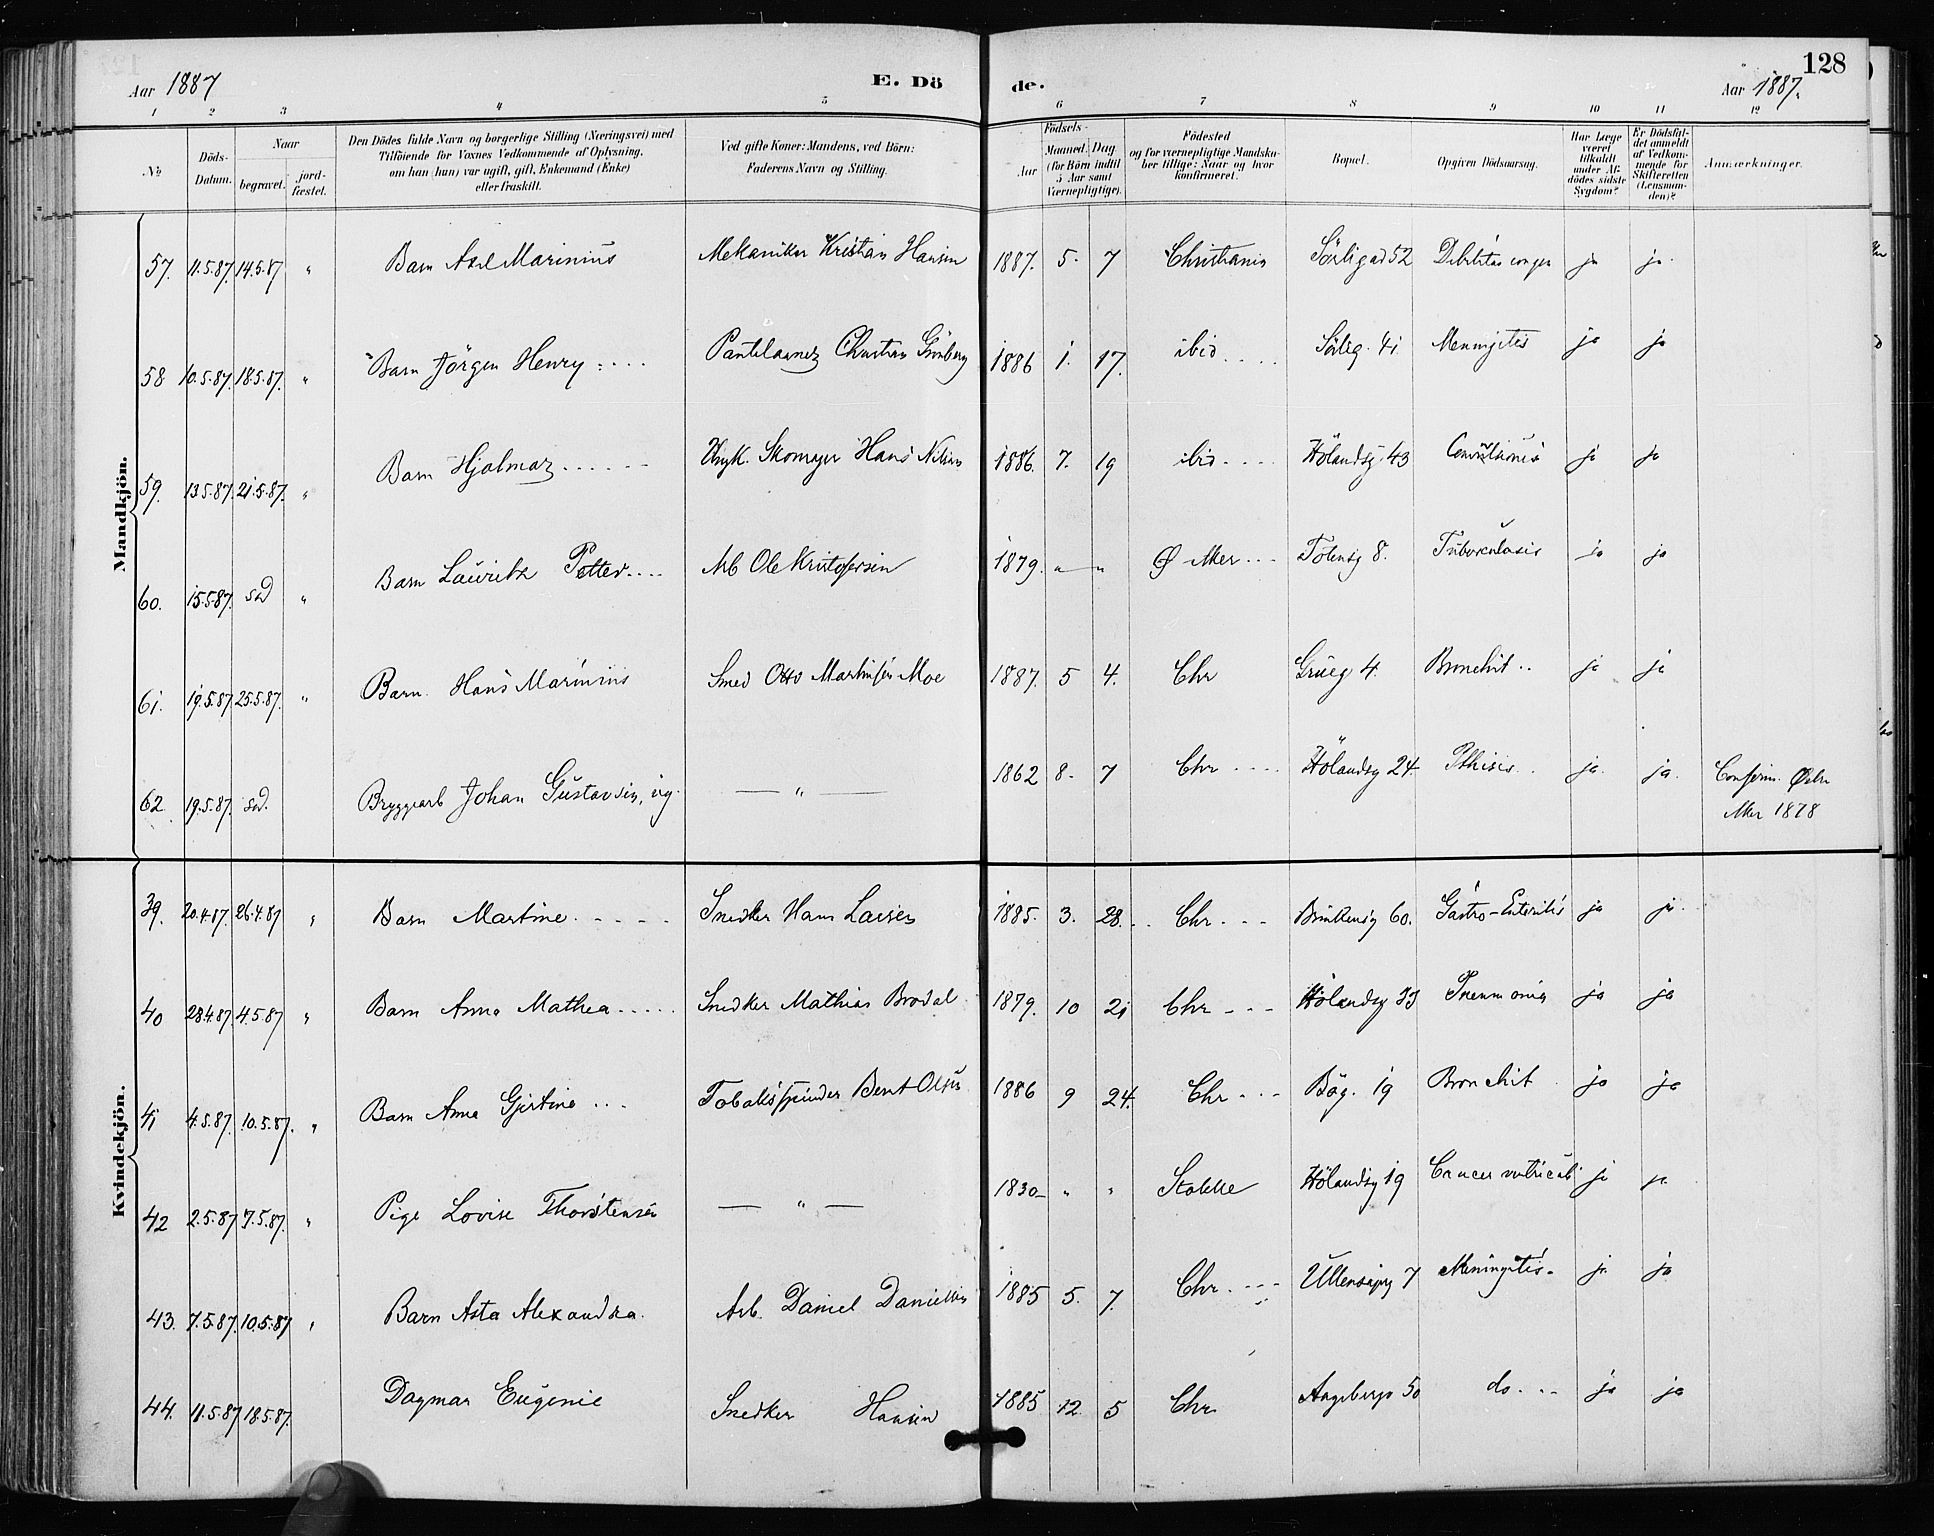 128
Aar 1887
E. Dö
de.
Aar 1887.
1 2 3 4 5 6 7 8 9 10 11 12
№
Döds-Datum.
Naar
begravet.
jord-fæstet.
Den Dödes fulde Navn og borgerlige Stilling (Næringsvei) med
Tilföiende for Voxnes Vedkommende af Oplysning,
om han (hun) var ugift, gift, Enkemand (Enke)
eller fraskilt.
Ved gifte Koner: Mandens, ved Börn:
Faderens Navn og Stilling.
Födsels-
Aar
Maaned. Dag
(for Börn indtil
5 Aar samt
Værnepligtige).
Födested
og for værnepligtige Mandska-
ber tillige: Naar og hvor
konfirmeret.
Bopæl.
Opgiven Dödsaarsag.
Har Læge
været
tilkaldt
under Af-
dödes sidste
Sygdom?
Er Dödsfal-
det anmeldt
af Vedkom-
mende for
Skifteretten
(Lensman-
den)?
Anmærkninger.
Mandkjön.
57. 11.5.87. 14.5.87 " Barn Axel Marinius Mekaniker Kristian Hansen 1887. 5. 7 Christiania Sörligad 52 Debilitas congen ja ja.
58 10.5.87. 18.5.87. " Barn Jörgen Henry Pantelaaner Christian Grönberg 1886 1. 17. ibid Sörlig. 41 Meningitis ja ja
59. 13.5.87. 21.5.87. " Barn Hjalmar Skomager Hans Nilsen 1886. 7. 19 ibid Hölandsg. 43 Convulsiones ja ja
60. 15.5.87. sad " Barn Lauritz Petter Arb Ole Kristofersen 1879. " " Ø Aker Totensg 8. Tuberculosis ja ja
61. 19.5.87. 25.5.87. " Barn Hans Marinius Smed Otto Martinsen Moe 1887. 5 4. Chr Grueg 4. Bronchit ja ja
62 19.5.87. sad. Bryggearb Johan Gustavsen, ug. — " — 1862 8. 7 Chr Hölandsg 24. Pthisis ja. ja. Confirm. Østre
Aker 1878
Kvindekjön.
39. 20.4.87. 26.4.87 " Barn Martine Snedker Hans Larsen 1885. 3. 28. Chr Brinkensg 60. Gastro-Enteritis ja ja.
40 28.4.87. 4.5.87 " Barn Anna Mathea Snedker Mathias Brodal 1879. 10 21 Chr Hölandsg 33 Pneumonia ja ja
41 4.5.87. 10.5.87. " Barn Anna Gjertine Tobakspinder Bernt Olsen 1886 9 24. Chr Bög. 19 Bronchit ja ja
42 2.5.87 7.5.87. " Pige Lovise Thorstensen — " — 1830 " " Hölandsg 19 Cancer ventriculi ja ja
43. 7.5.87. 10.5.87 " Barn Asta Alexandra. Arb. Daniel Danielsen 1885 5. 7. Chr Ullensagg 7 Meningitis ja ja
44. 11.5.87 18.5.87. Dagmar Eugenie Snedker Hansen 1885 12. 5 Chr Aagebergv 50 do. ja ja